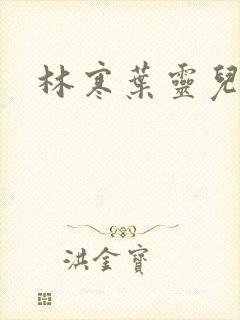 林寒葉靈兒
洪金寶